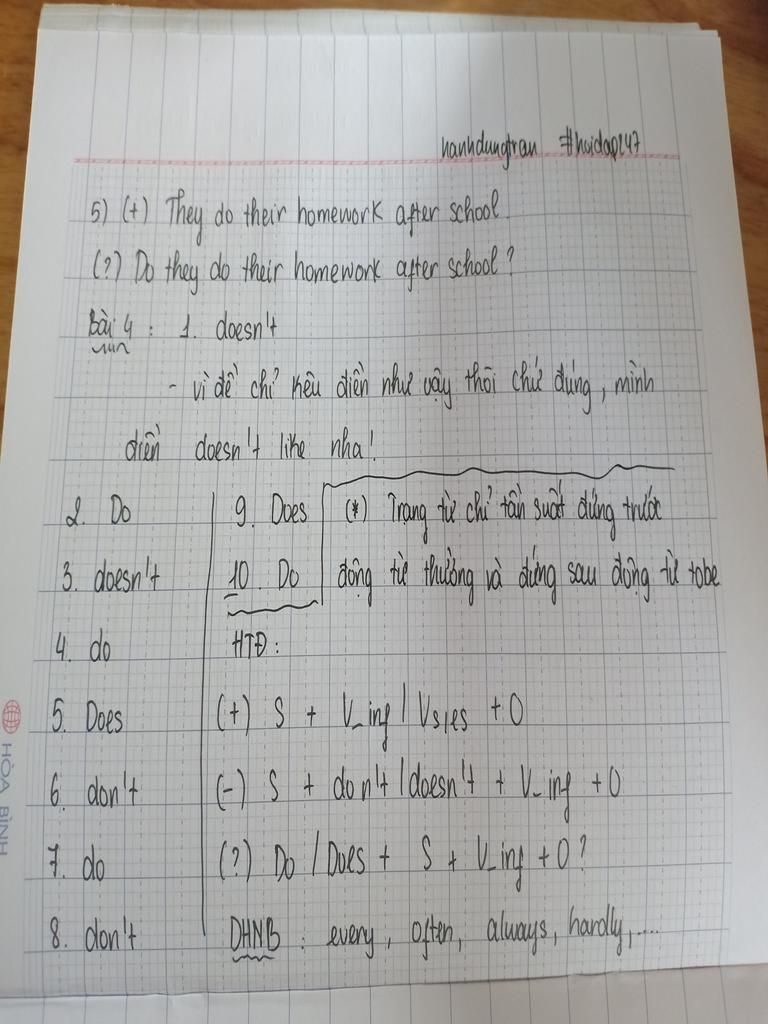 hanhdungtran #hoidap247
5) (+) They do their homework after school.
(?) Do they do their homework after school?
Bài 4 : 1. doesn't
- vì đề chỉ kêu điền như vậy thôi chứ đúng, mình
điền doesn't like nha!
2. Do
3. doesn't
4. do
5. Does
6. don't
7. do
8. don't
9. Does
10. Do
(*) Trạng từ chỉ tần suất đứng trước
động từ thường và đứng sau động từ tobe
HTĐ :
(+) S + V_ing / Vs/es + O
(-) S + don't / doesn't + V_ing + O
(?) Do / Does + S + V_ing + O?
DHNB : every, often, always, hardly,....
HÒA BÌNH